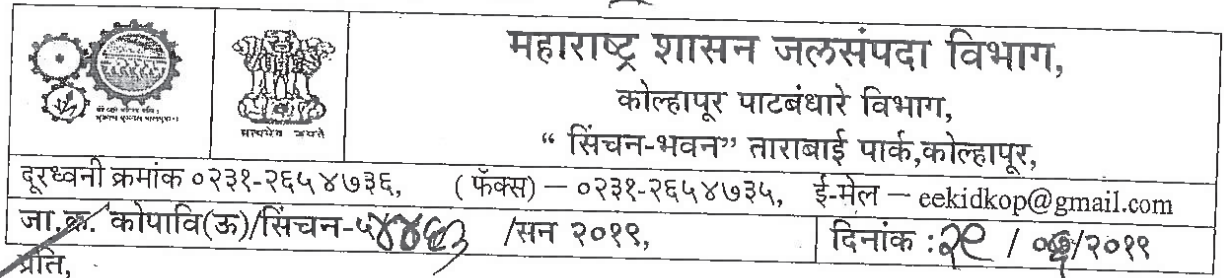 महाराष्ट्र शासन जलसंपदा विभाग,
कोल्हापूर पाटबंधारे विभाग,
“ सिंचन-भवन” ताराबाई पार्क,कोल्हापूर,
सत्यमेव जयते
दूरध्वनी क्रमांक ०२३१-२६५४७३६, ( फॅक्स) – ०२३१-२६५४७३५, ई-मेल – eekidkop@gmail.com
जा.क्र. कोपावि(ऊ)/सिंचन- /सन २०१९, दिनांक : २९ / /२०१९
प्रति,